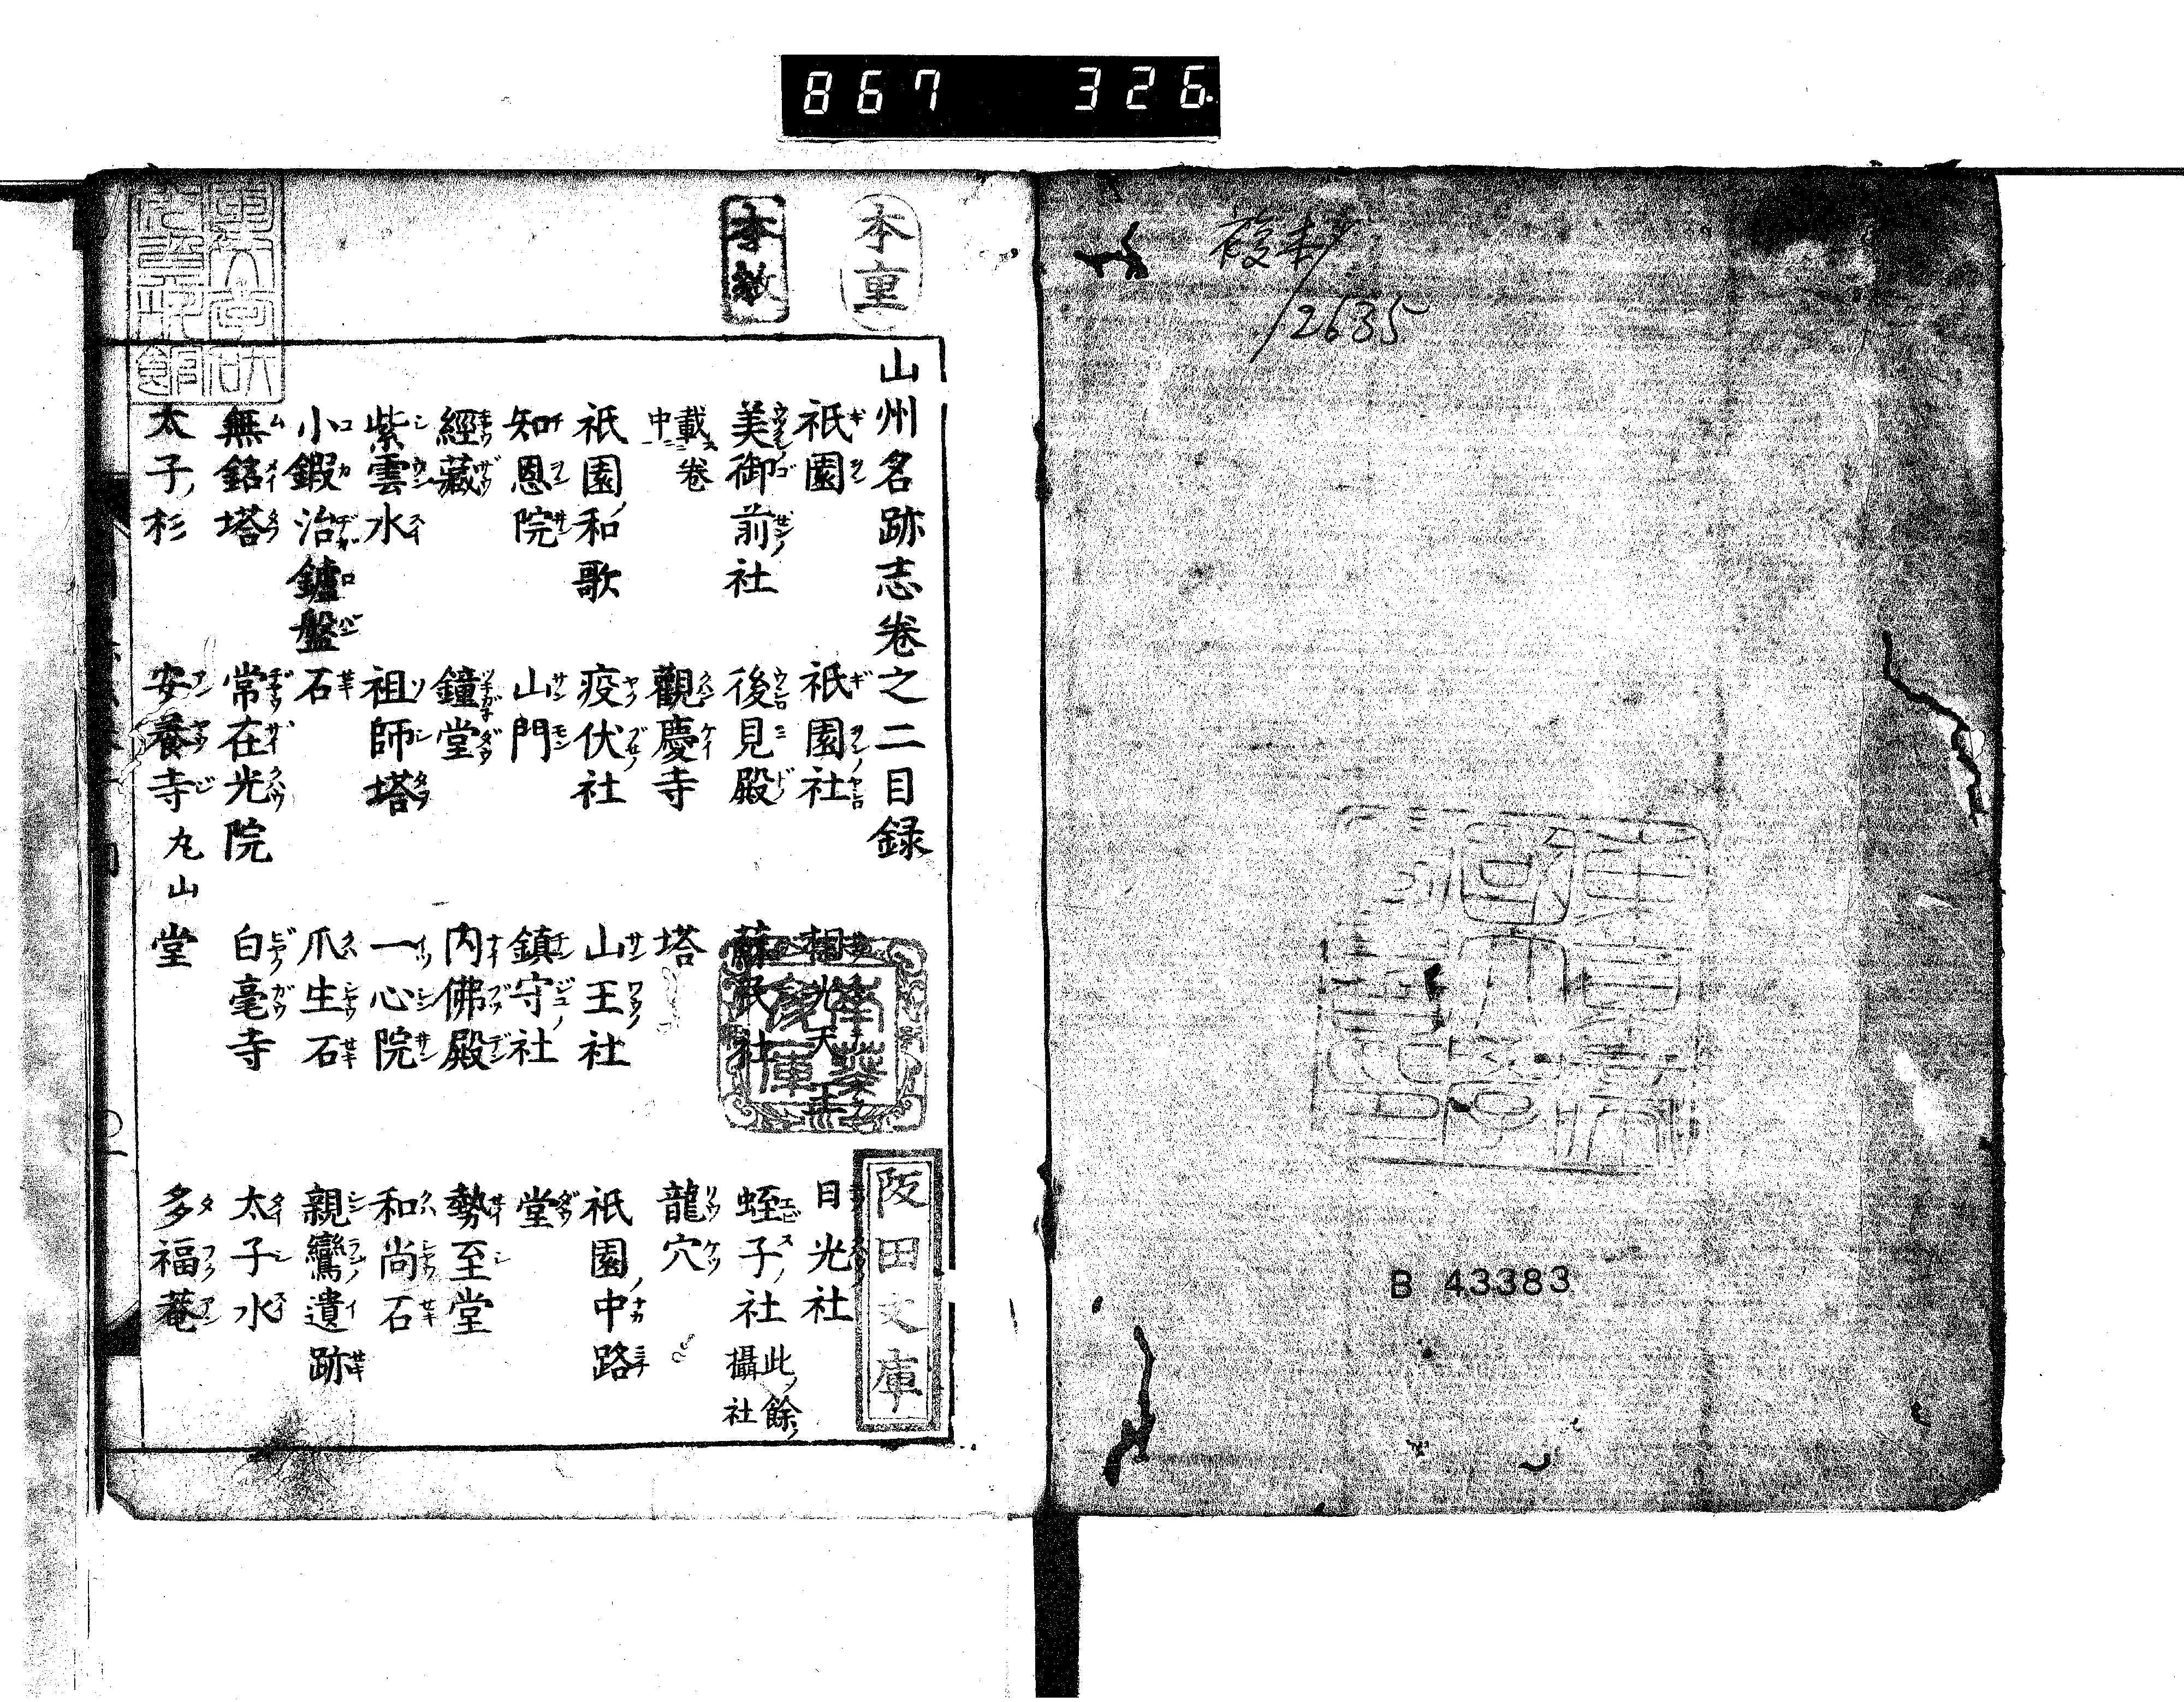 867 326
複本
12635
B 43383
本重
本教
阪田文庫
山州名跡志卷之二目録
祇園 祇園社 相光天王 日光社
美御前社 後見殿 蘇民社 蛭子社 此餘攝社
載卷中 觀慶寺 塔 龍穴
祇園和歌 疫伏社 山王社 祇園中路
知恩院 山門 鎮守社 堂
經藏 鐘堂 内佛殿 勢至堂
紫雲水 祖師塔 一心院 和尚石
小鍜治鑪盤石 爪生石 親鸞遺跡
無銘塔 常在光院 白毫寺 太子水
太子杉 安養寺 丸山 堂 多福菴